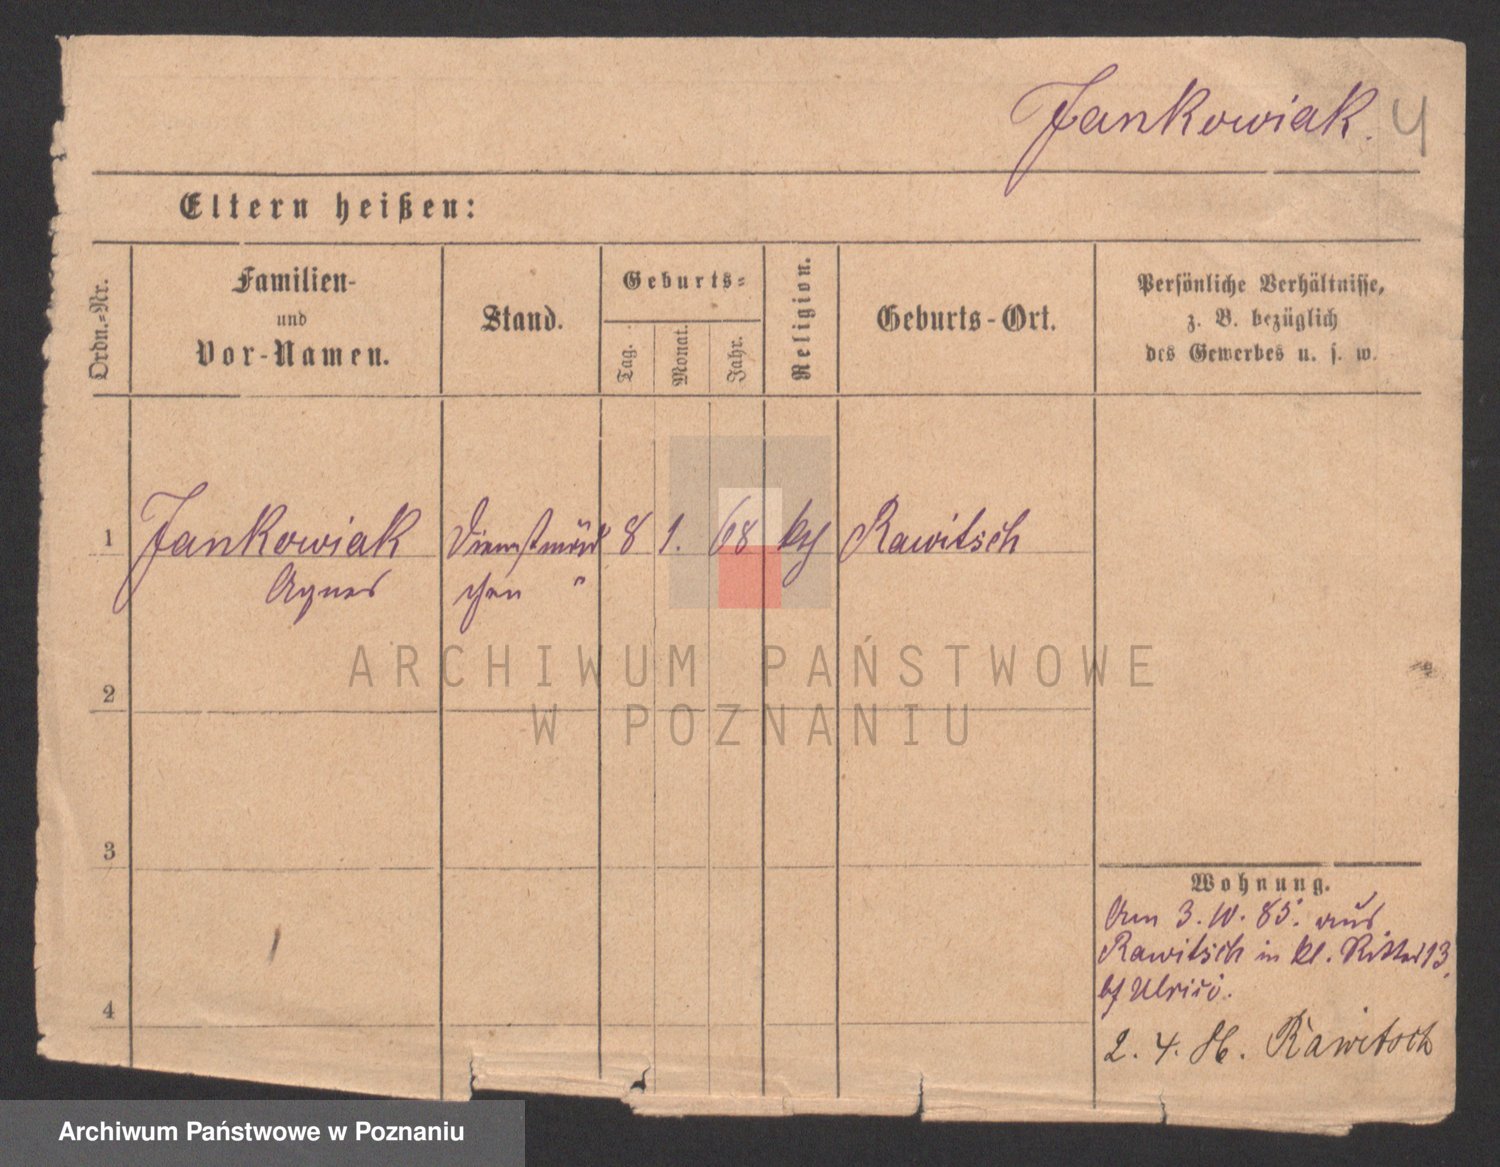 Jankowiak. 4
Eltern heißen:
Ordn.=Nr.
Familien-
und
Vor-Namen.
Stand.
Geburts=
Tag.
Monat.
Jahr.
Religion.
Geburts-Ort.
Persönliche Verhältnisse,
z. B. bezüglich
des Gewerbes u. s. w.
1 Jankowiak Dienstmäd 8 1. 68 kth Rawitsch
Agnes chen "
2
3
4
Wohnung.
Am 3.10.85. aus
Rawitsch in kl. Ritter 13,
bf Ulrici.
2. 4. 86. Rawitsch
ARCHIWUM PAŃSTWOWE
W POZNANIU
Archiwum Państwowe w Poznaniu